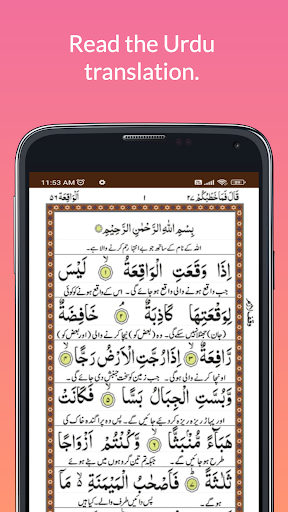 Read the Urdu
translation.
11:53 AM
قَالَ فَمَا خَطْبُكُمْ ٢٧ ١ اَلْوَاقِعَة ٥٦
بِسْمِ اللّٰهِ الرَّحْمٰنِ الرَّحِيْمِ
اللہ کے نام کے ساتھ جو بے انتہا رحم کرنے والا ہے۔
اِذَا وَقَعَتِ الْوَاقِعَةُ ١ لَيْسَ
جب واقع ہونے والی واقع ہو جائے گی۔ اس کے واقع ہونے کو کوئی
لِوَقْعَتِهَا كَاذِبَةٌ ٢ خَافِضَةٌ
جھٹلا نہ سکے گا۔ (بعض کو) نیچا کرنے والی (اور بعض کو)
رَّافِعَةٌ ٣ اِذَا رُجَّتِ الْاَرْضُ رَجًّا ٤
اونچا کرنے والی ہوگی۔ جب زمین کو سخت جنبش دی جائے گی۔
وَّبُسَّتِ الْجِبَالُ بَسًّا ٥ فَكَانَتْ
اور پہاڑ ریزہ ریزہ کر دیے جائیں گے۔ پس وہ پراگندہ خاک کی
هَبَآءً مُّنْۢبَثًّا ٦ وَّكُنْتُمْ اَزْوَاجًا
طرح ہو جائیں گے۔ جبکہ تم تین گروہوں میں بٹے ہو
ثَلٰثَةً ٧ فَاَصْحٰبُ الْمَيْمَنَةِ ۙ مَاۤ
جاؤ گے۔ پس دائیں طرف والے۔ کیا ہیں